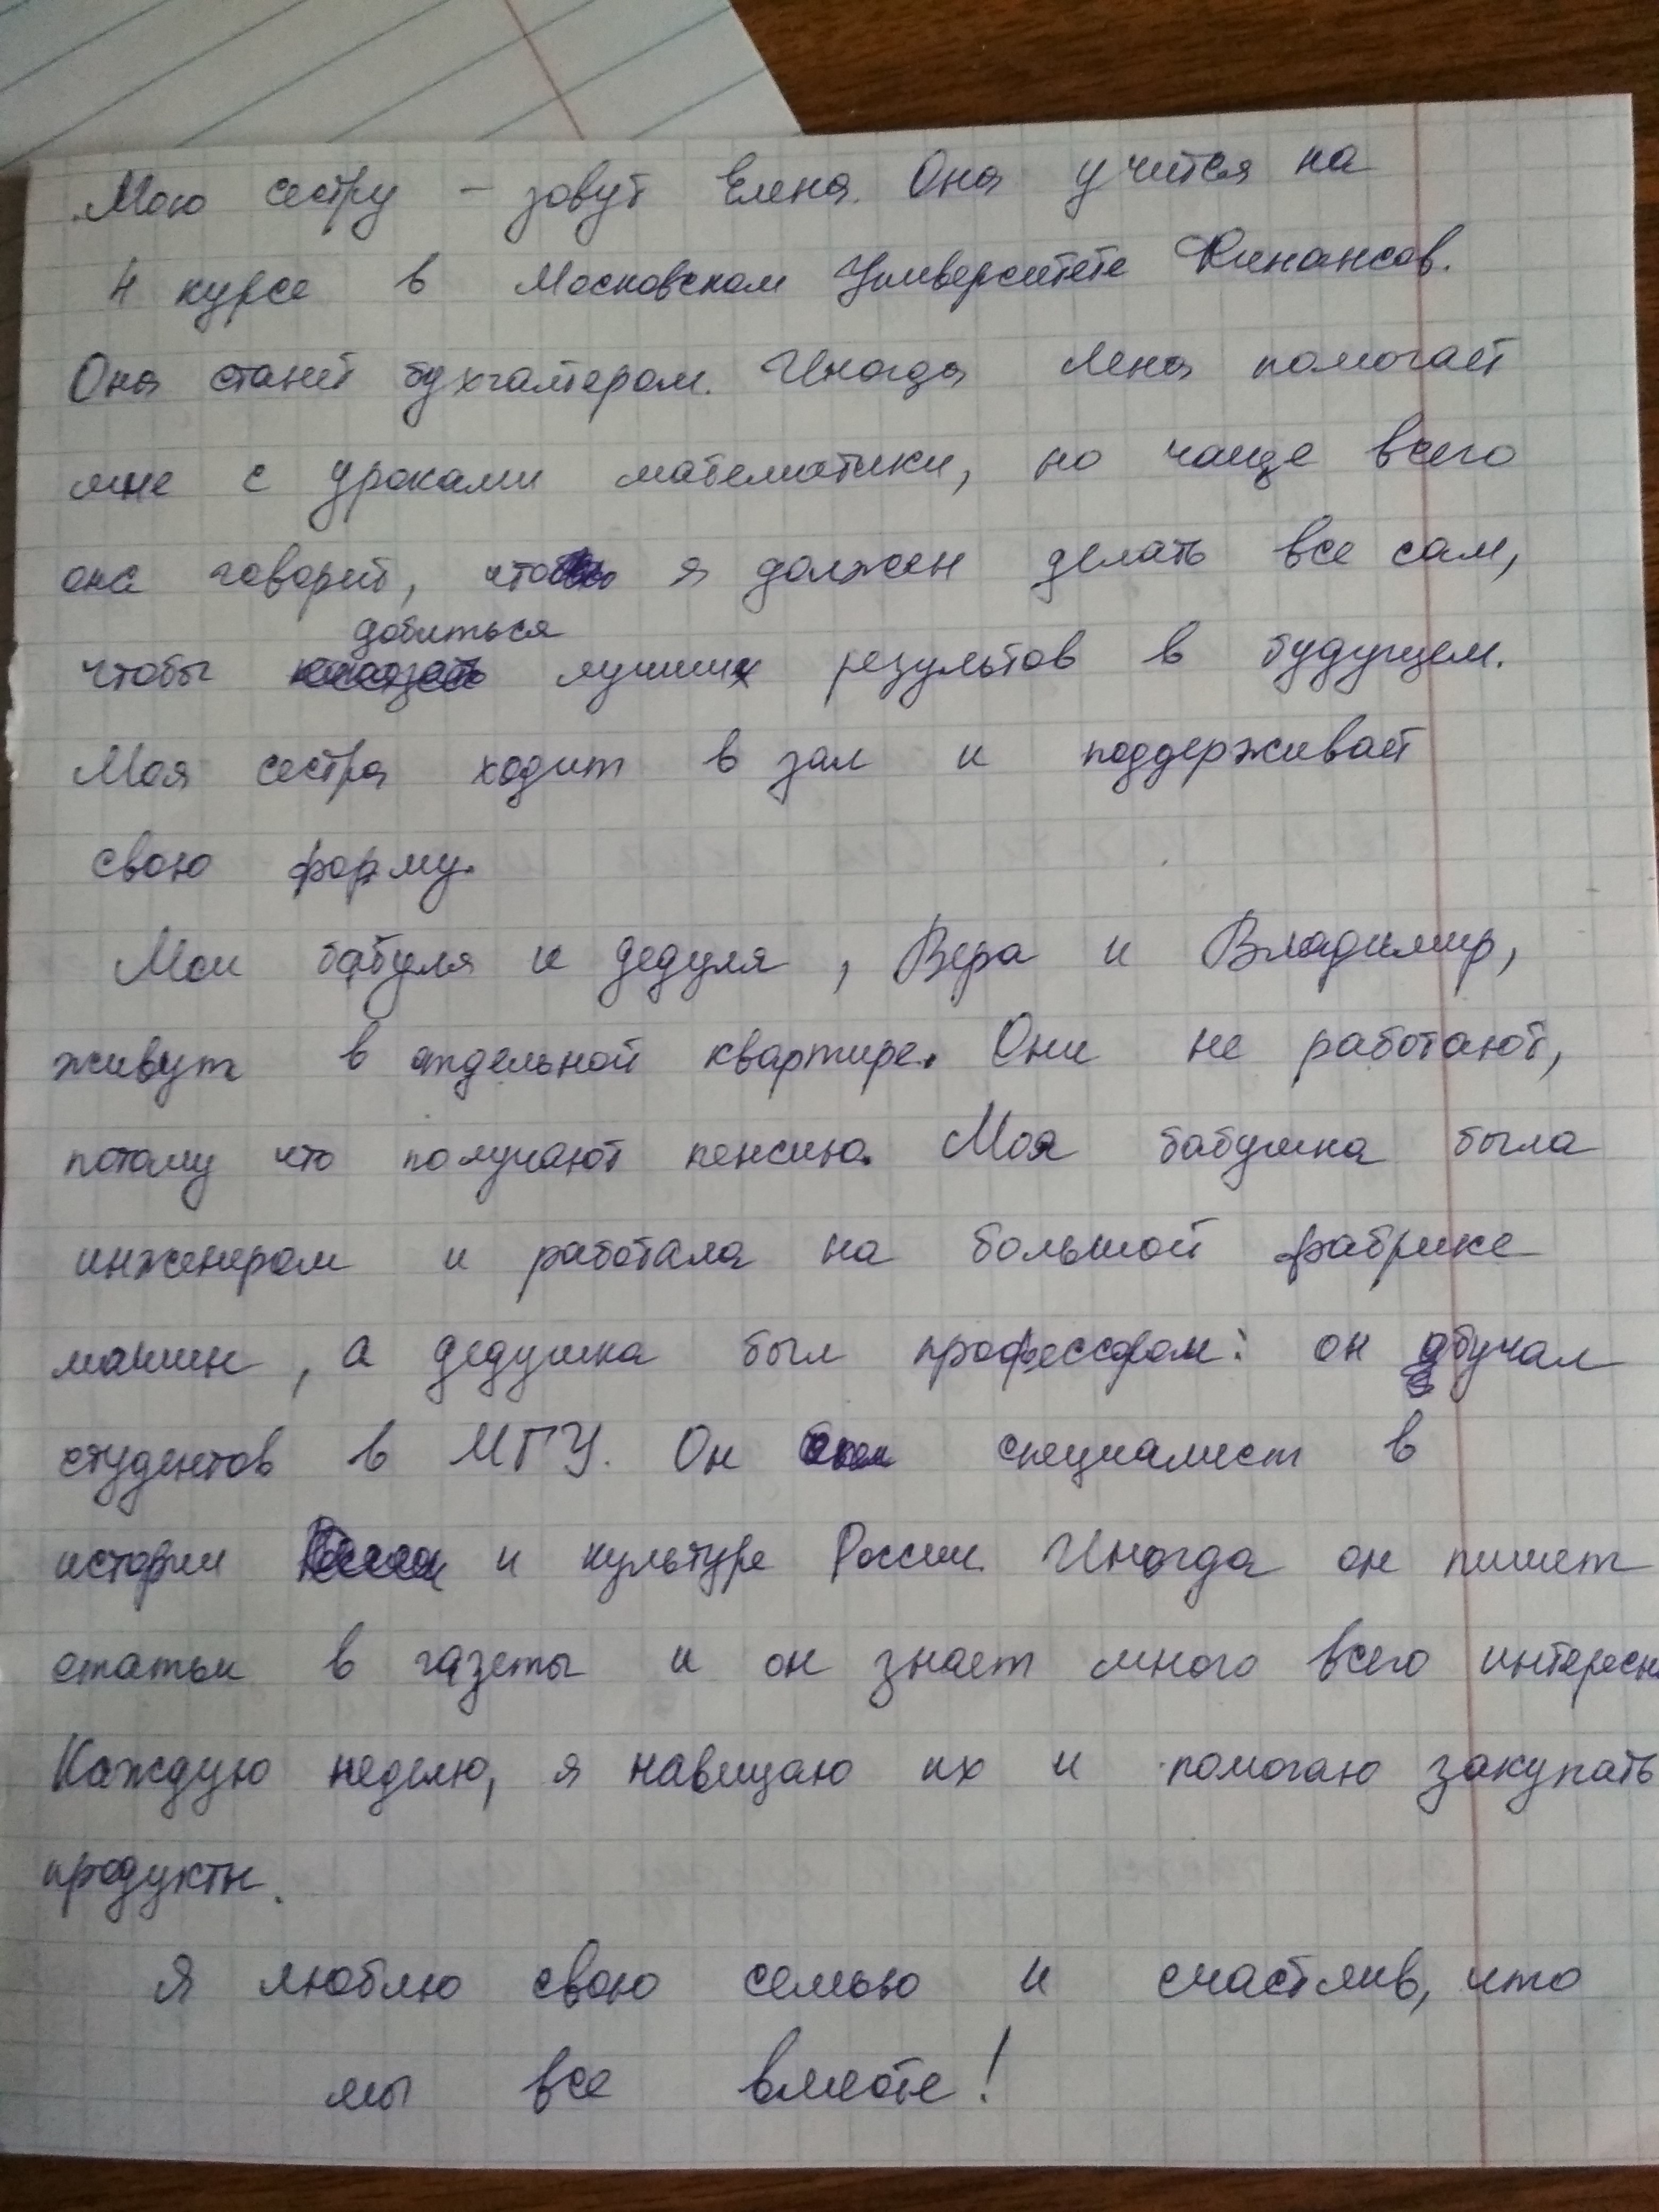 Мою сестру – зовут Елена. Она учится на
4 курсе в Московском Университете Финансов.
Она станет бухгалтером. Иногда Лена помогает
мне с уроками математики, но чаще всего
она говорит, что я должен делать все сам,
добиться
чтобы лучших результов в будущем.
Моя сестра ходит в зал и поддерживает
свою форму.
Мои бабуля и дедуля, Вера и Владимир,
живут в отдельной квартире. Они не работают,
потому что получают пенсию. Моя бабушка была
инженером и работала на большой фабрике
машин, а дедушка был профессором: он обучал
студентов в МГУ. Он специалист в
истории и культуре России. Иногда он пишет
статьи в газеты и он знает много всего интересн
Каждую неделю, я навещаю их и помогаю закупать
продукты.
Я люблю свою семью и счастлив, что
мы все вместе!